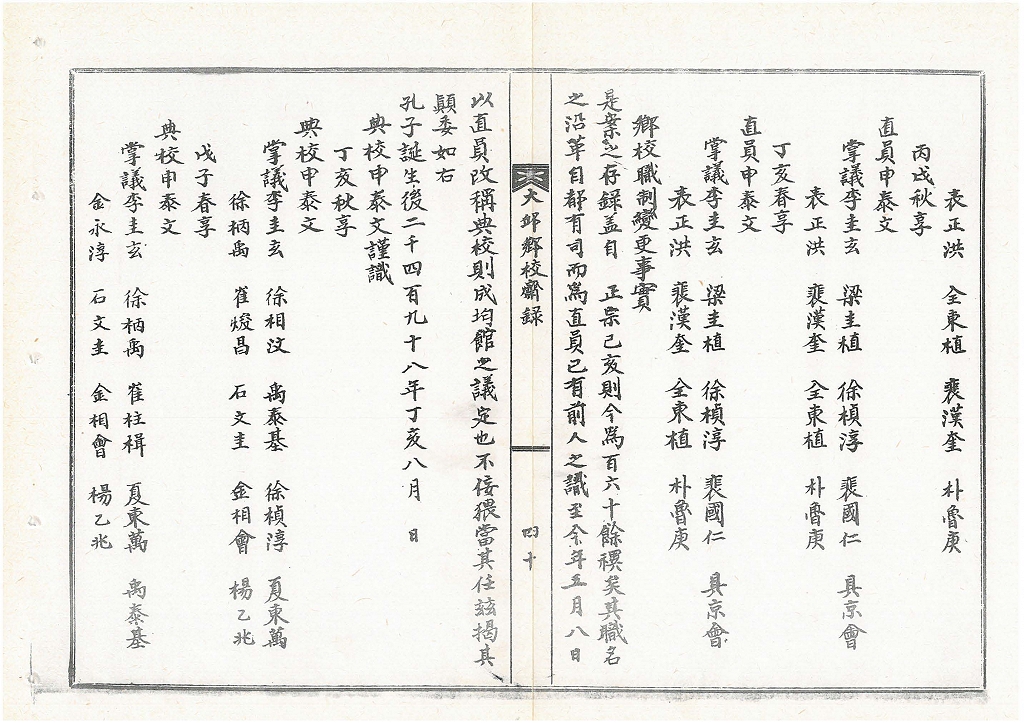 表正洪 全東植 裴漢奎 朴魯庚
丙戌秋享
直員申泰文
掌議李圭玄 梁圭植 徐楨淳 裴國仁 具京會
表正洪 裴漢奎 全東植 朴魯庚
丁亥春享
直員申泰文
掌議李圭玄 梁圭植 徐楨淳 裴國仁 具京會
表正洪 裴漢奎 全東植 朴魯庚
鄉校職制變更事實
是案之存錄盖自 正宗己亥則今爲百六十餘禩矣其職名
之沿革自都有司而爲直員已有前人之識至今年五月八日
大邱鄉校齋錄 四十
以直員改稱典校則成均館之議定也不佞猥當其任玆揭其
顚委如右
孔子誕生後二千四百九十八年丁亥八月 日
典校申泰文謹識
丁亥秋享
典校申泰文
掌議李圭玄 徐相汶 禹泰基 徐楨淳 夏東萬
徐柄禹 崔焌昌 石文圭 金相會 楊乙兆
戊子春享
典校申泰文
掌議李圭玄 徐柄禹 崔柱楫 夏東萬 禹泰基
金永淳 石文圭 金相會 楊乙兆